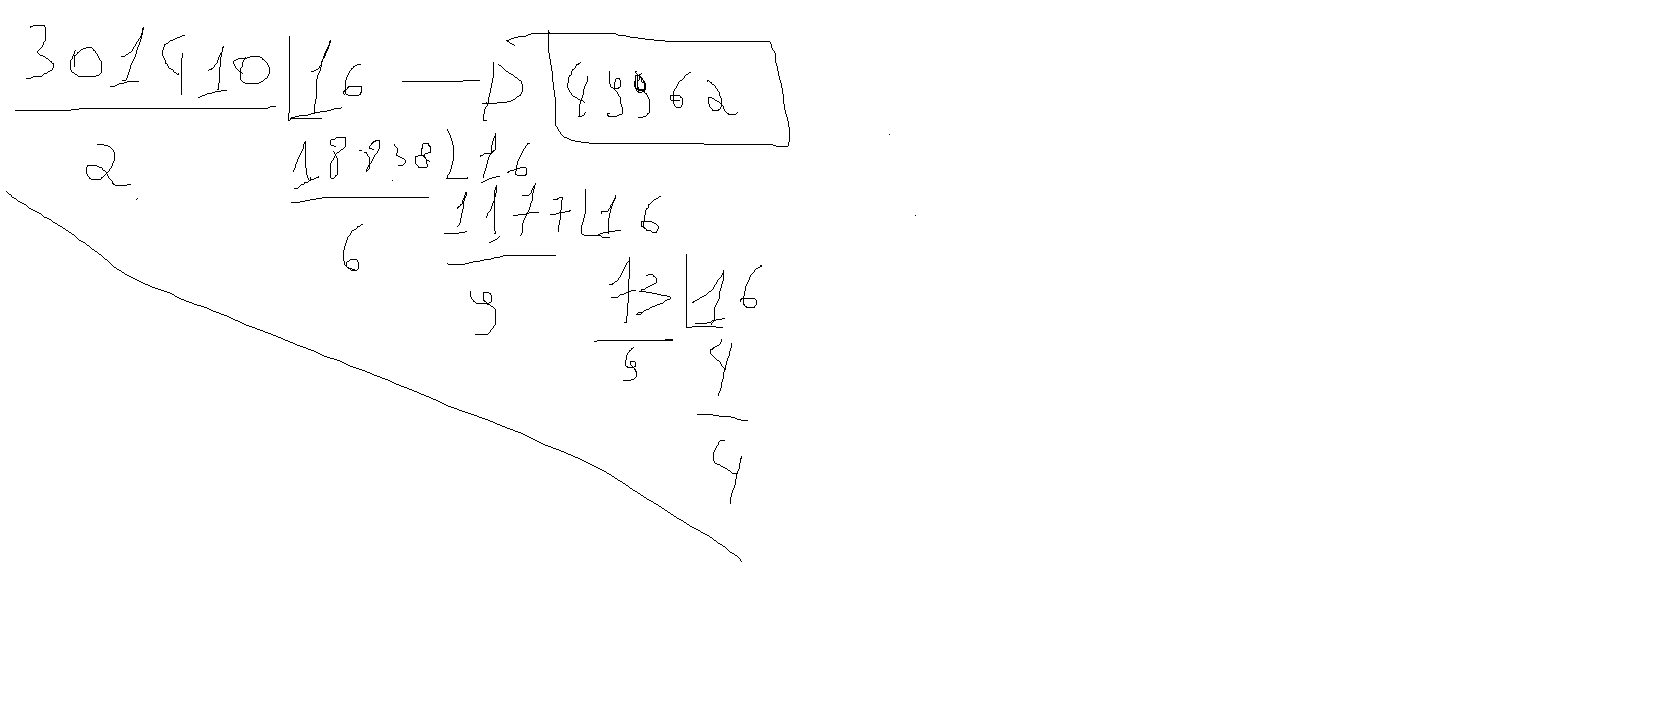 301410 16 49962
2 18838 16
6 1177 16
9 73 16
9 4
4